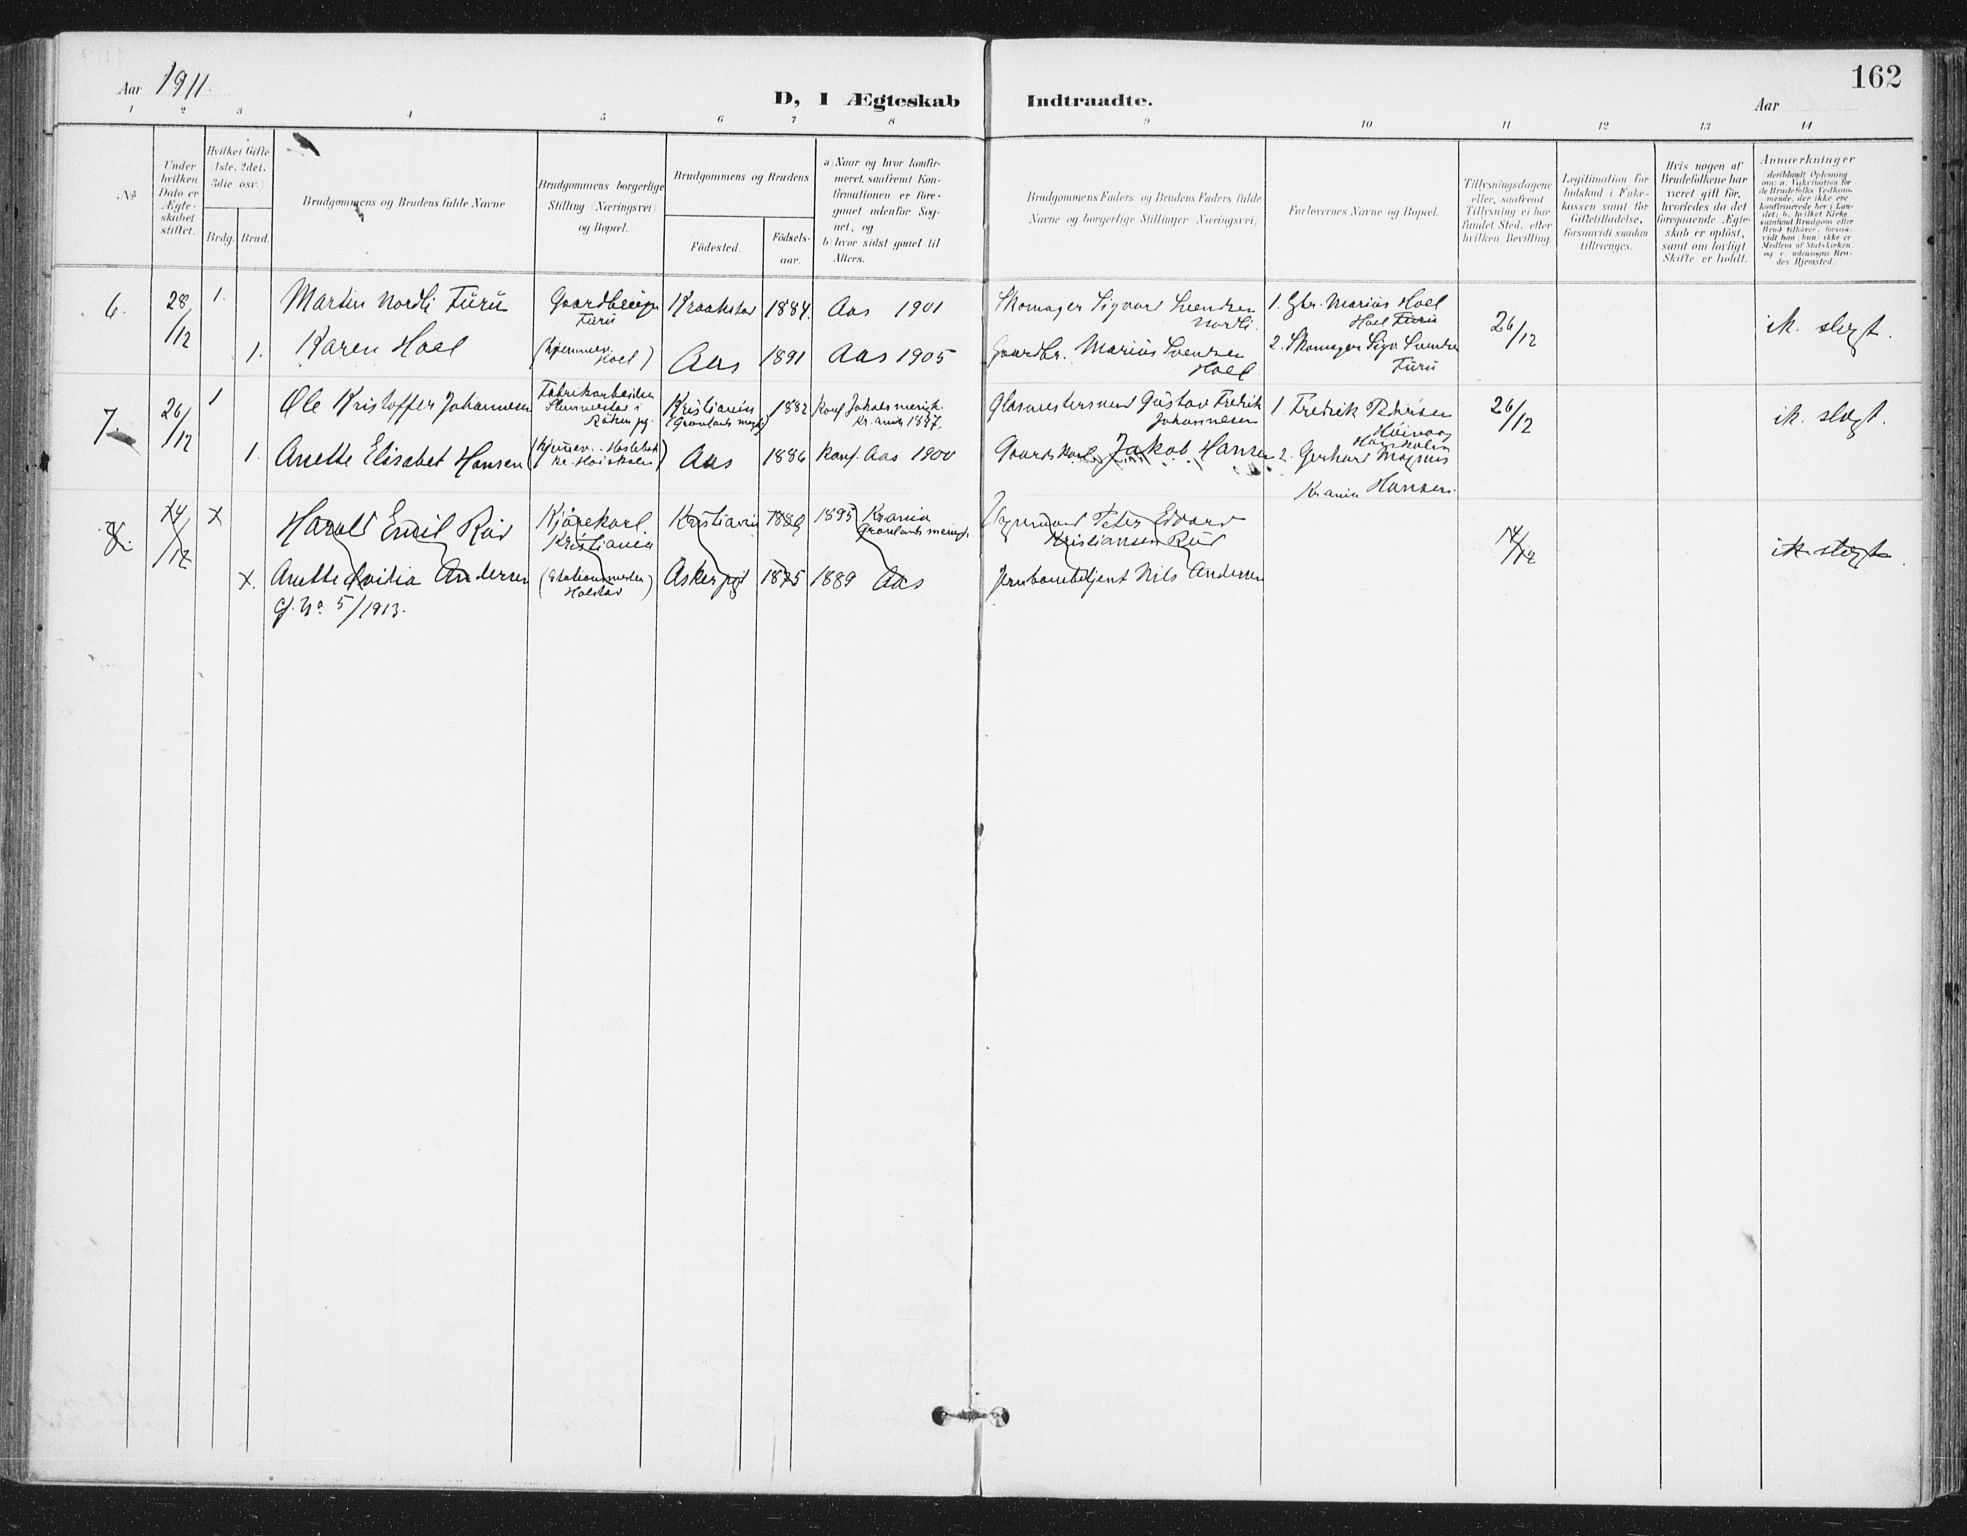 Aar 1911.
D, I Ægteskab Indtraadte.
Aar
162
1 2 3 4 5 6 7 8 9 10 11 12 13 14
No
Under hvilken Dato er Ægteskabet stiftet.
Hvilket Gifte (1ste, 2det, 3die osv.)
Brdg. Brud.
Brudgommens og Brudens fulde Navne
Brudgommens borgerlige Stilling (Næringsvei) og Bopæl.
Brudgommens og Brudens
Fødested.
Fødselsaar.
a) Naar og hvor konfirmeret, saafremt Konfirmationen er foregaaet udenfor Sognet, og
b) hvor sidst gaaet til Alters.
Brudgommens Faders og Brudens Faders fulde Navne og borgerlige Stillinger (Næringsvei)
Forlovernes Navne og Bopæl.
Tillysningsdagene eller, saafremt Tillysning ei har fundet Sted, efter hvilken Bevilling.
Legitimation for Indskud i Enkekassen samt for Giftetilladelse, forsaavidt saadan tiltrænges.
Hvis nogen af Brudefolkene har været gift før, hvorledes da det foregaaende Ægteskab er opløst, samt om lovligt Skifte er holdt.
Anmærkninger
6. 28/12 1. Martin Nordli Furu Furu Kraakstad 1884. Aas 1901 Skomager Sigvard Svendsen Nordli. 1. Gbr. Marius Hoel Hoel Furu 26/12 ik. slegt.
1. Karen Hoel (hjemmev. Hoel) Aas 1891 Aas 1905 Gaardbr. Marius Svendsen Hoel 2. Skomager Sigv. Svendsen Furu
7. 26/12 1 Ole Kristoffer Johannesen Fabrikarbeider Slemmestad i Røken pg. Kristiania (Grønlands mgh.) 1882 Konf. Jakobs menigh. Kr.ania 1897. Glasmestersvend Gustav Fredrik Johannesen 1. Fredrik 26/12 ik. slegt.
1. Anette Elisabet Hansen Aas 1886 Konf. Aas 1900 Gaardskarl Jakob Hansen 2. Gerhard Magnus
Kr.ania Hansen.
8. 14/12 X Harald Emil Rud Kjørekarl Kristiania Kristiania 1880 1895 Kr.ania Grønlands menigh. Peter Edvard Kristiansen Rud 14/12 ik slegt.
X. Anette Ovidia Andersen (Stationsmester Holstad) Asker pgd 1875 1889 Aas Jernbanebetjent Nils Andersen
Cf. No. 5/1913.